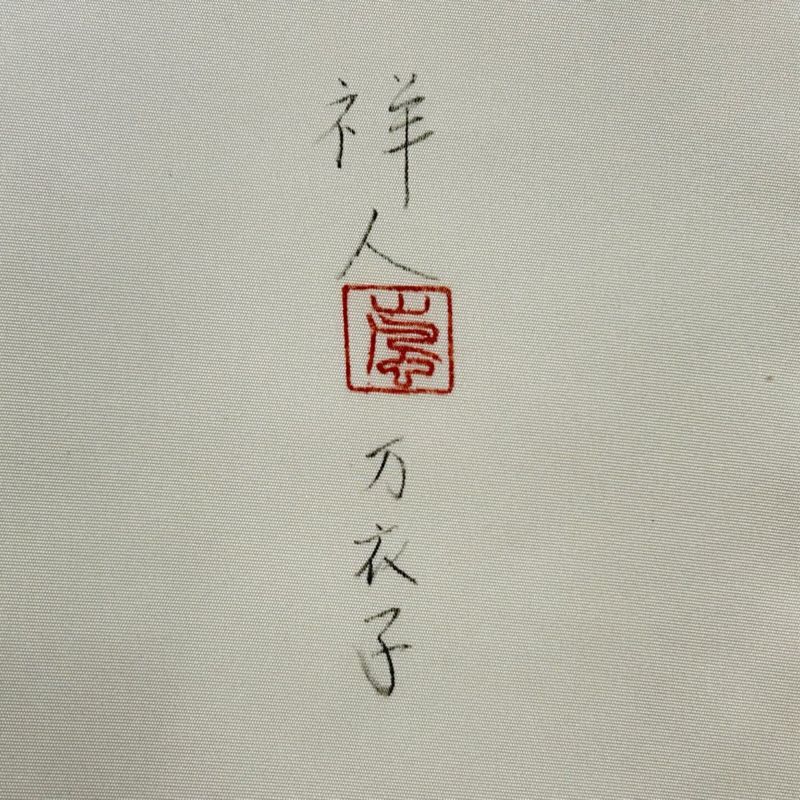 祥人
万衣子